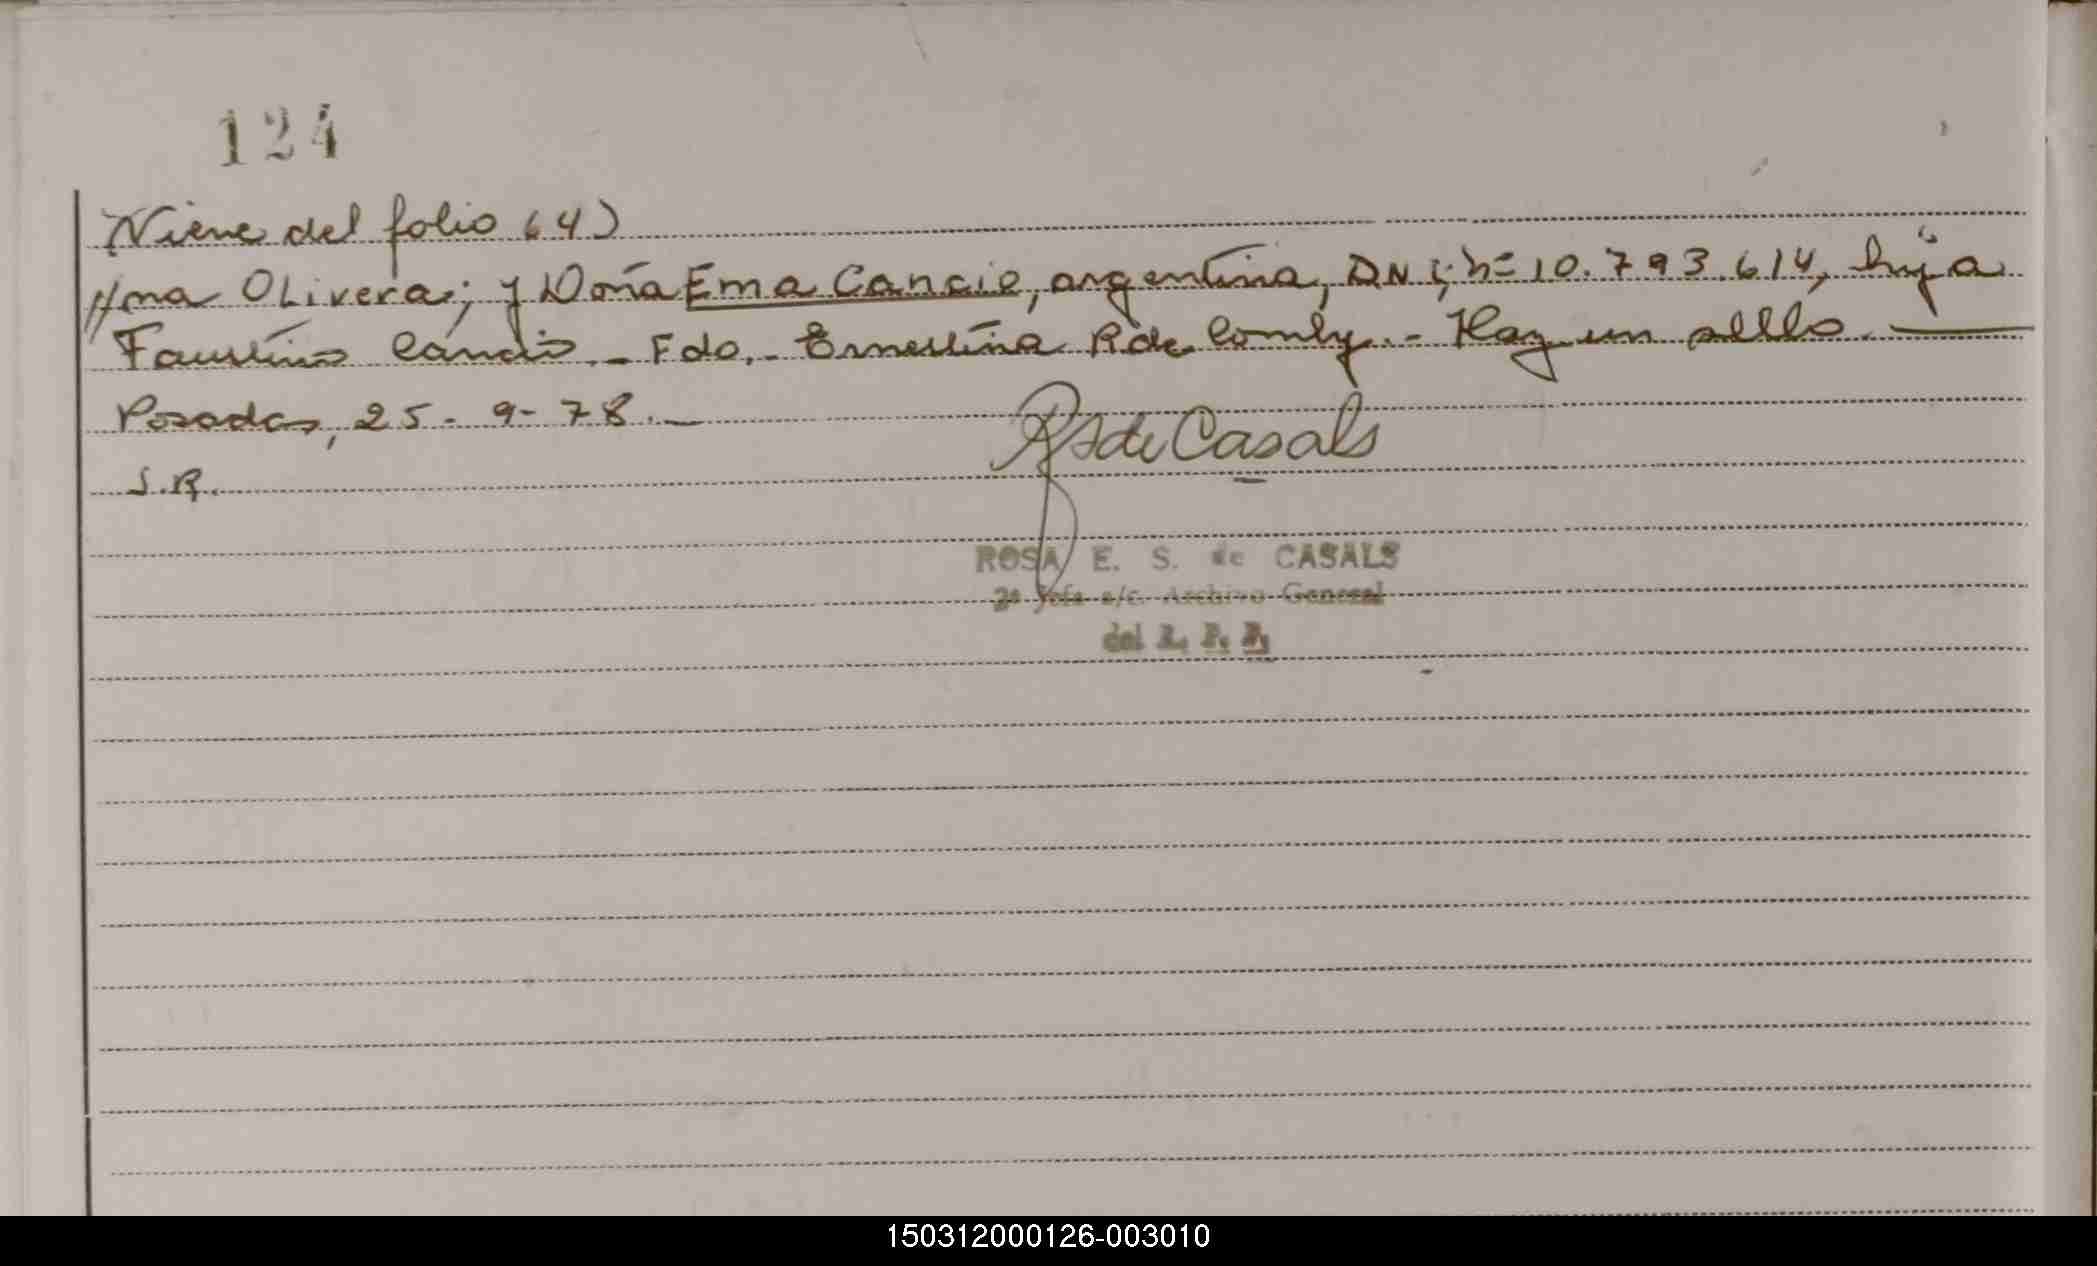 124
Viene del folio 64)
//ma Olivera; y Doña Ema Cancio, argentina, DNI; nº 10.793.614, hija
Faustino Cancio.- Fdo.- Ernestina R de Comly.- Hay un sello.
Posadas, 25-9-78.-
S.R.
RS de Casals
ROSA E. S. de CASALS
2ª Jefa a/c. Archivo General
del R. P. P.
150312000126-003010